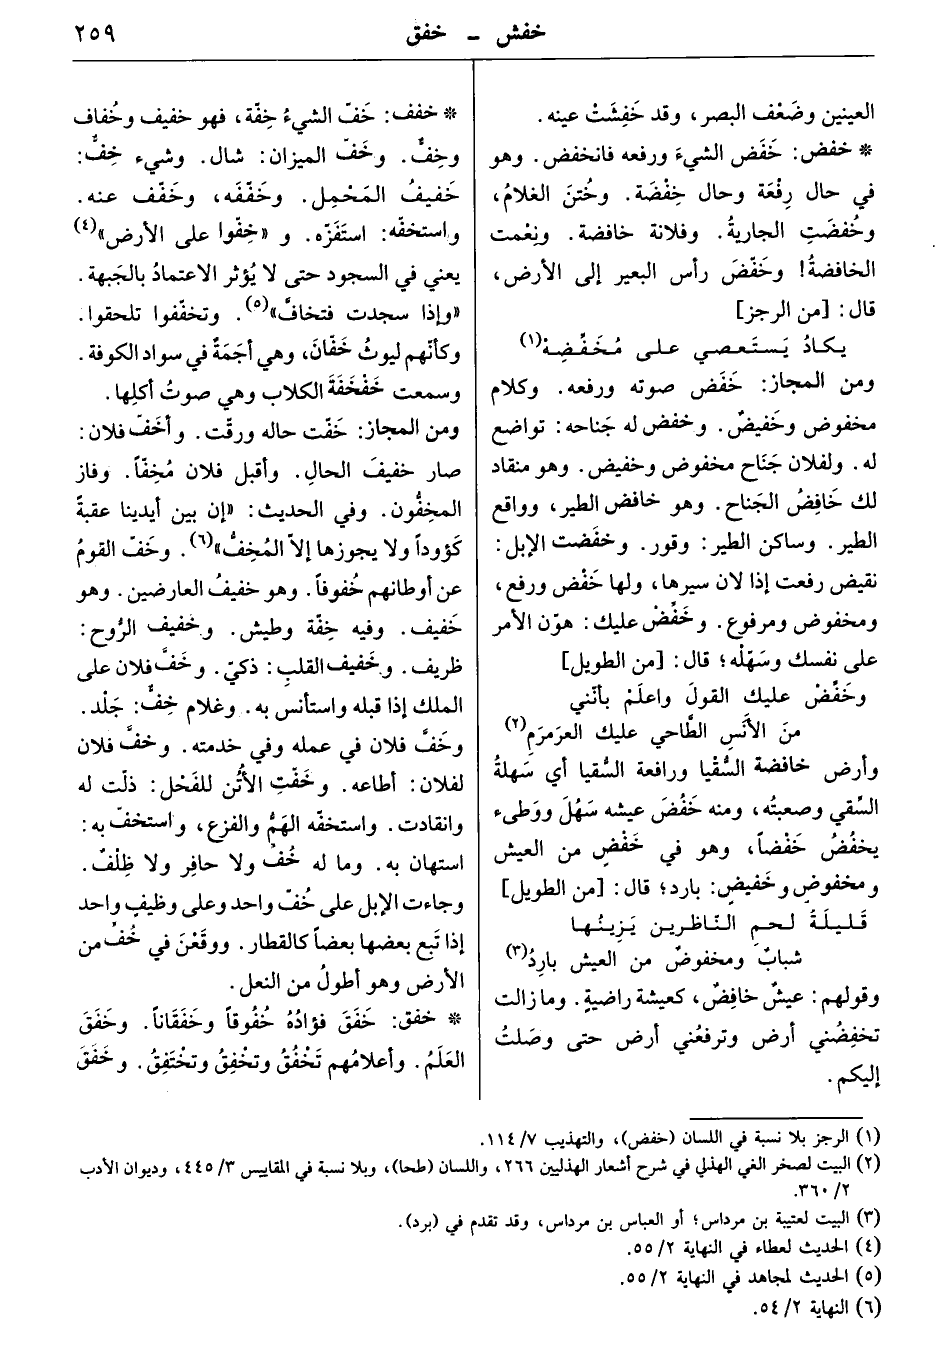 خفش ـ خفق
٢٥٩
العينين وضَعْف البصر، وقد خَفِشَتْ عينه.
* خفض: خَفَض الشيءَ ورفعه فانخفض. وهو
في حال رِفْعَة وحال خِفْضَة. وخُتنَ الغلامُ،
وخُفضَتِ الجاريةُ. وفلانة خافضة. ونِعْمت
الخافضةُ! وخَفّضَ رأس البعير إلى الأرض،
قال: [من الرجز]
يكادُ يَستَعصي على مُخَفِّضِهْ(١)
ومن المجاز: خَفَض صوته ورفعه. وكلام
مخفوض وخَفيضٌ. وخفض له جَناحه: تواضع
له. ولفلان جَنَاح مخفوض وخفيض. وهو منقاد
لك خَافِضُ الجَناح. وهو خافض الطير، وواقع
الطير. وساكن الطير: وقور. وخفَضت الإبل:
نقيض رفعت إذا لان سيرها، ولها خَفْض ورفع،
ومخفوض ومرفوع. وخَفِّضْ عليك: هوّن الأمر
على نفسك وسَهّلْه؛ قال: [من الطويل]
وخَفِّضْ عليك القولَ واعلَمْ بأنّني
منَ الأَنَسِ الطَّاحي عليك العرَمرَمِ(٢)
وأرض خافضة السُّقيا ورافعة السقيا أي سَهلةُ
السَّقي وصعبتُه، ومنه خَفُضَ عيشه سَهُلَ ووَطىء
يخفُضُ خَفْضاً، وهو في خَفْضٍ من العيش
ومخفوضٍ وخَفيضٍ: بارد؛ قال: [من الطويل]
قَليلَةُ لحم النّاظرين يَزِينُها
شبابٌ ومخفوضٌ من العيش بارِدُ(٣)
وقولهم: عيشٌ خافِضٌ، كعيشة راضيةٍ. وما زالت
تخفِضُني أرض وترفعُني أرض حتى وصَلتُ
إليكم.
* خفف: خَفّ الشيءُ خِفّة، فهو خفيف وخُفاف
وخِفٌّ. وخَفّ الميزان: شال. وشيء خِفٌّ:
خَفيفُ المَحْمِل. وخَفّفَه، وخَفّف عنه.
واستخفّه: استَفَزّه. و «خِفّوا على الأرض»(٤)
يعني في السجود حتى لا يُؤثر الاعتمادُ بالجَبهة.
«وإذا سجدت فتخافَّ»(٥). وتخفّفوا تلحقوا.
وكأنّهم ليوثُ خَفّانَ، وهي أجَمَةٌ في سواد الكوفة.
وسمعت خَفْخَفَةَ الكلاب وهي صوتُ أكلِها.
ومن المجاز: خَفّت حاله ورقّت. وأخَفّ فلان:
صار خفيفَ الحالِ. وأقبل فلان مُخِفّاً. وفاز
المخِفُّون. وفي الحديث: «إن بين أيدينا عقبةً
كَؤوداً ولا يجوزها إلاّ المُخِفُّ»(٦). وخَفّ القومُ
عن أوطانهم خُفوفاً. وهو خفيفُ العارضين. وهو
خَفيف. وفيه خِفّة وطيش. وخفيف الرُّوح:
ظريف. وخَفيف القلبِ: ذكيّ. وخَفَّ فلان على
الملك إذا قبله واستأنس به. وغلام خِفٌّ: جَلْد.
وخَفَّ فلان في عمله وفي خدمته. وخفَّ فلان
لفلان: أطاعه. وخَفّتِ الأُتُن للفَحْل: ذلّت له
وانقادت. واستخفّه الهَمُّ والفزع، واستخفّ به:
استهان به. وما له خُفٌ ولا حافِر ولا ظِلْفٌ.
وجاءت الإبل على خُفّ واحد وعلى وظيفٍ واحد
إذا تَبِع بعضها بعضاً كالقطار. ووقَعْنَ في خُفّ من
الأرض وهو أطولُ من النعل.
* خفق: خَفَقَ فؤادُهُ خُفُوقاً وخَفَقَاناً. وخَفَقَ
العَلَمُ. وأعلامُهم تَخْفُقُ وتخْفِقُ وتخْتَفِقُ. وخَفَقَ
(١) الرجز بلا نسبة في اللسان (خفض)، والتهذيب ٧/ ١١٤.
(٢) البيت لصخر الغي الهذلي في شرح أشعار الهذليين ٢٦٦، واللسان (طحا)، وبلا نسبة في المقاييس ٣/ ٤٤٥، وديوان الأدب
٢/ ٣٦٠.
(٣) البيت لعتيبة بن مرداس؛ أو العباس بن مرداس، وقد تقدم في (برد).
(٤) الحديث لعطاء في النهاية ٢/ ٥٥.
(٥) الحديث لمجاهد في النهاية ٢/ ٥٥.
(٦) النهاية ٢/ ٥٤.